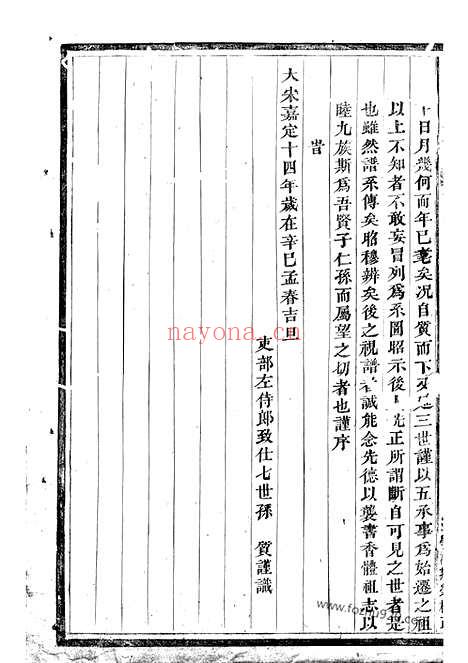 日月幾何而年已耄矣况自質而下又三世謹以五承事爲始遷之祖
以上不知者不敢妄冒列爲系圖昭示後先正所謂斷自可見之世者是
也雖然譜系傳矣昭穆辨矣後之視譜者誠能念先德以襲書香體祖志以
睦九族斯爲吾賢子仁孫而屬望之切者也謹序
旹
大宋嘉定十四年歲在辛巳孟春吉旦
吏部左侍郎致仕七世孫 質謹識
nayona.cn